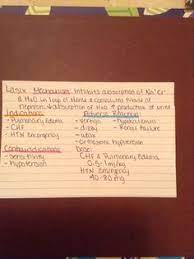 Lasix Mechanism: Inhibits absorption of Na+ Cl-
& H2O in loop of Henle & convoluted tubule of
nephron. ↓ absorption of H2O ↑ production of urine
Indications Adverse Reactions
- Pulmonary Edema - vertigo - hypokalemia
- CHF - dizzy - Renal failure
- HTN Emergency - weak
- orthostatic hypotension
Contraindications Dose:
- sensitivity CHF & Pulmonary Edema
- hypotension 0.5-1mg/kg
HTN Emergency
40-80mg